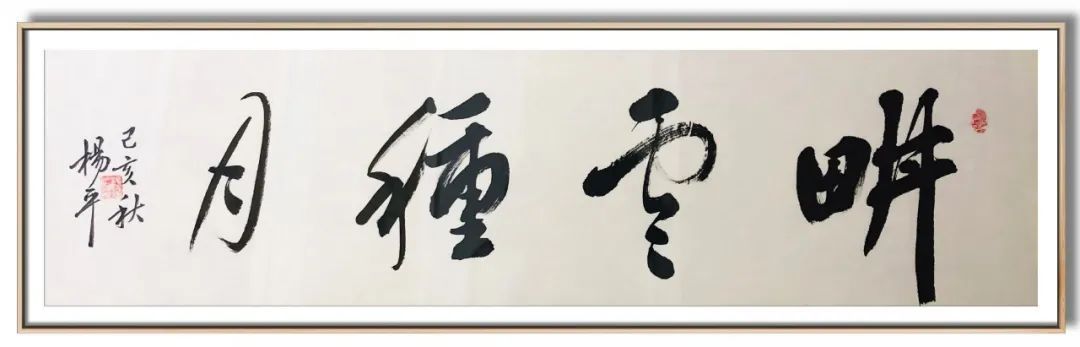 畊雲種月
己亥秋
楊平